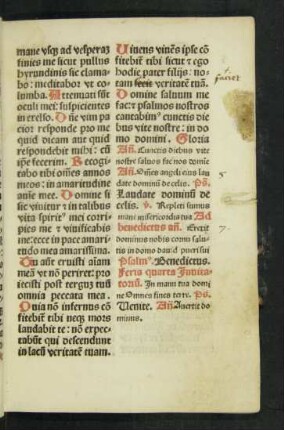 mane vsq; ad vesperaʒ
finies me sicut pullus
hyrundinis sic clama⸗
bo: meditabor vt co⸗
lumba. Attenuati sūt
oculi mei: suspicientes
in excelso. Dn̄e vim pa
cior responde pro me
quid dicam aut quid
respondebit mihi: cū
ip̄e fecerim. Recogi⸗
tabo tibi om̄es annos
meos: in amaritudine
aīe mee. Domine si
sic viuitur ⁊ in talibus
vita spirit⁹ mei corri⸗
pies me ⁊ viuificabis
me: ecce in pace amari⸗
tudo mea amarissima.
Tu aūt eruisti aīam
meā vt nō periret: pro
iecisti post terguʒ tuū
omnia peccata mea.
Quia nō infernus cō
fitebit̄ tibi neqʒ mors
laudabit te: nō expec⸗
tabūt qui descendunt
in lacū veritatē tuam.
Viuens viuēs ipse cō
fitebit̄ tibi sicut ⁊ ego
hodie: pater filijs: no⸗
tam veritatē tuā.
Domine saluum me
fac: ⁊ psalmos nostros
cantabim⁹ cunctis die
bus vite nostre: in do
mo domini. Gloria
Añ. Cunctis diebus vite
nostre saluos fac nos domīe
Añ. Om̄es angeli eius lau
date dominū de celis. Ps.
Laudate dominū de
celis. ℣. Repleti sumus
mane misericordia tua Ad
benedictus añ. Erexit
dominus nobis cornu salu⸗
tis in domo dauid pueri sui
Psalm⁹. Benedictus.
Feria quarta Inuita⸗
toriū. In manu tua domi
ne Omnes fines terre. Ps.
Venite. Añ. Auertit do⸗
minus.
5
7.